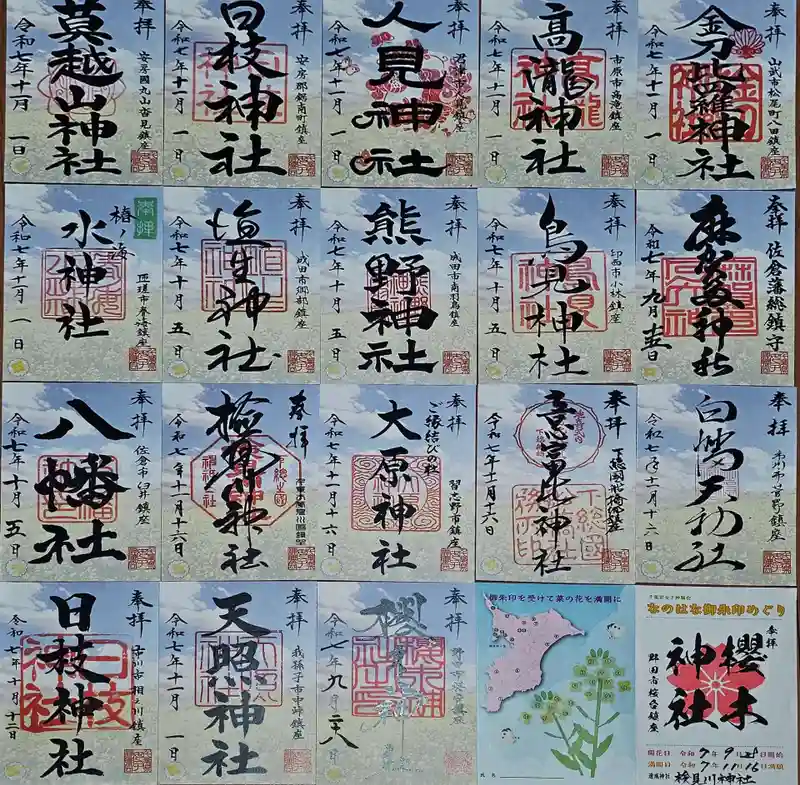 奉拝
莫越山神社
安房国丸山沓見鎮座
令和七年十一月一日
奉拝
日枝神社
安房郡鋸南町鎮座
令和七年十一月一日
奉拝
人見神社
令和七年十一月一日
奉拝
高瀧神社
市原市高滝鎮座
令和七年十一月一日
奉拝
金刀比羅神社
山武市松尾町八田鎮座
令和七年十一月一日
奉拝
椿ノ海
水神社
匝瑳市春海鎮座
令和七年十一月一日
奉拝
埴生神社
成田市郷部鎮座
令和七年十月五日
奉拝
熊野神社
成田市南羽鳥鎮座
令和七年十月五日
奉拝
鳥見神社
印西市小林鎮座
令和七年十月五日
奉拝
佐倉藩総鎮守
麻賀多神社
令和七年九月
奉拝
八幡社
佐倉市臼井鎮座
令和七年十月五日
奉拝
検見川神社
令和七年十一月十六日
奉拝
ご縁結びの社
大原神社
習志野市鎮座
令和七年十月十六日
奉拝
意富比神社
令和七年十一月十六日
奉拝
白幡天神社
市川市菅野鎮座
令和七年十一月十六日
奉拝
日枝神社
市川市相之川鎮座
令和七年十月十二日
奉拝
天照神社
我孫子市中峠鎮座
令和七年十一月一日
奉拝
櫻木神社
令和七年九月
御朱印を受けて菜の花を満開に
氏名
なのはな御朱印めぐり
奉拝
櫻木神社
野田市桜台鎮座
開花日 令和7年9月28日開始
満開日 令和7年11月16日満願
達成神社 検見川神社